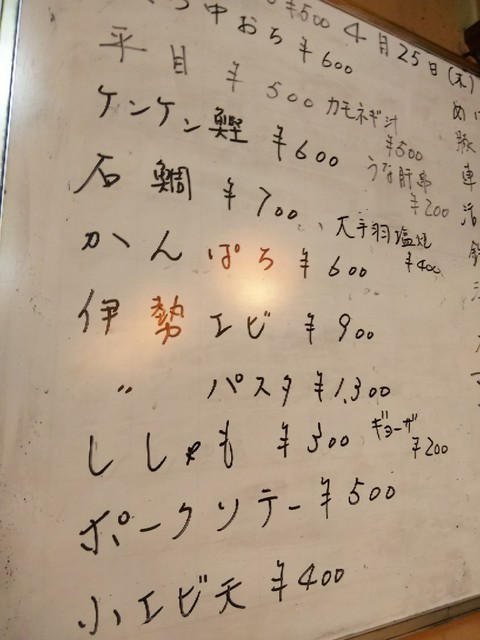 ¥500 4月25日(木)
中おち ¥600
平目 ¥500
カモネギ汁 ¥500
ケンケン鰹 ¥600
うな肝串 ¥200
石鯛 ¥700
大手羽塩焼 ¥400
かんぱち ¥600
伊勢エビ ¥900
〃 パスタ ¥1,300
ししゃも ¥300
ギョーザ ¥200
ポークソテー ¥500
小エビ天 ¥400